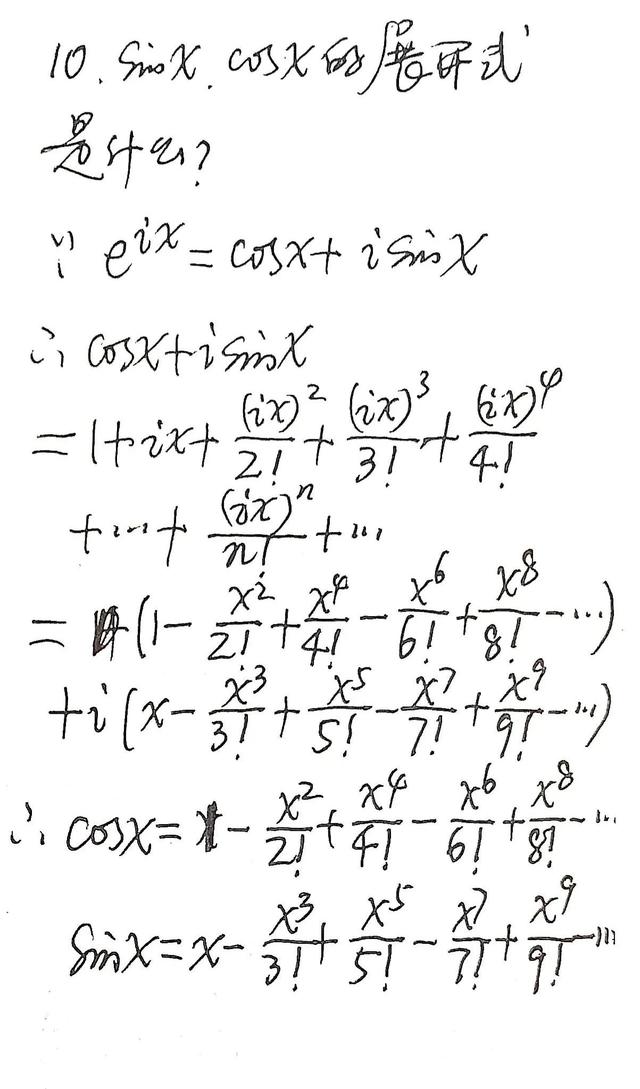 10. sinx. cosx的展开式
是什么?
∵ e^{ix} = cosx + i sinx
∴ cosx + i sinx
= 1 + ix + (ix)^2/2! + (ix)^3/3! + (ix)^4/4!
+ ··· + (ix)^n/n! + ···
= (1 - x^2/2! + x^4/4! - x^6/6! + x^8/8! - ···)
+ i(x - x^3/3! + x^5/5! - x^7/7! + x^9/9! - ···)
∴ cosx = 1 - x^2/2! + x^4/4! - x^6/6! + x^8/8! - ···
sinx = x - x^3/3! + x^5/5! - x^7/7! + x^9/9! - ···